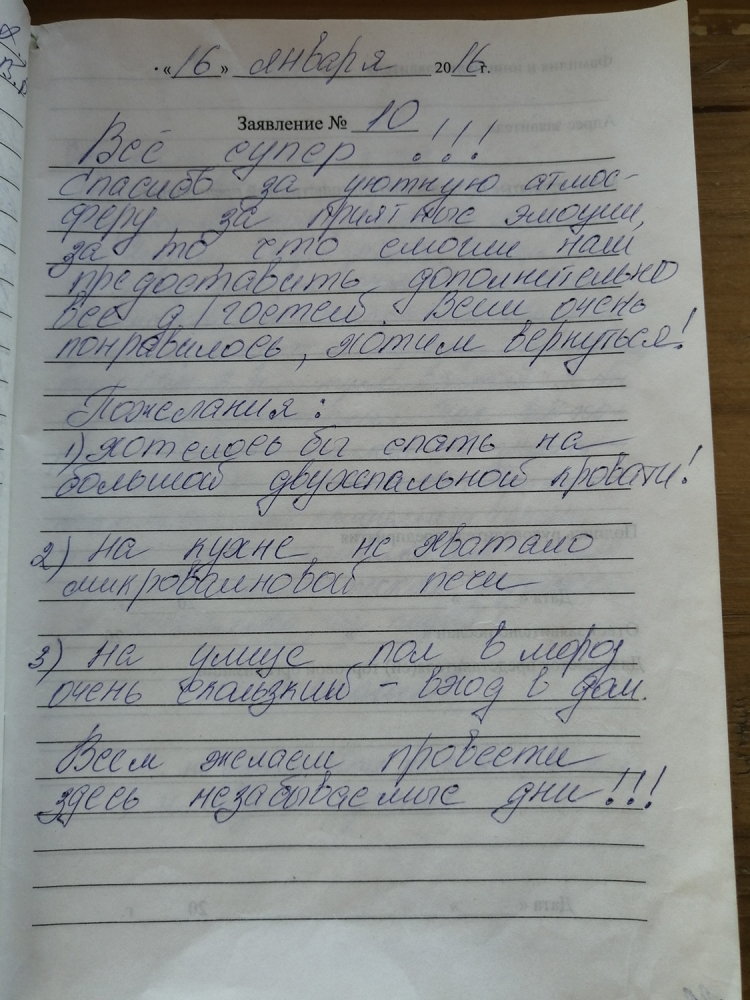 «16» января 2016г.
Заявление № 10
Всё супер !!!
Спасибо за уютную атмос-
феру, за приятные эмоции,
за то, что смогли нам
предоставить дополнительно
всё д/гостей. Всем очень
понравилось, хотим вернуться!
Пожелания:
1) хотелось бы спать на
большой двухспальной кровати!
2) на кухне не хватало
микроволновой печи
3) на улице пол в мороз
очень скользкий - вход в дом.
Всем желаем провести
здесь незабываемые дни!!!